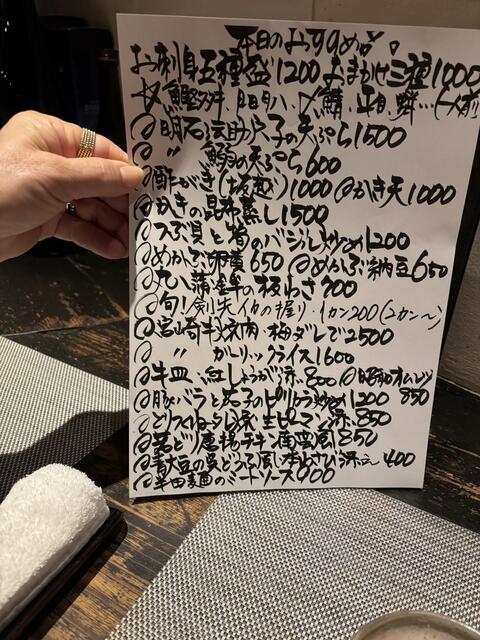 本日のおすすめ
お刺身五種盛1200 おまかせ三種1000
〆鯖、平目
明石 天ぷら1500
〃 の天ぷら600
酢がき 1000 かき天1000
かきの昆布蒸し1500
つぶ貝と筍のバジル炒め1200
めかぶ卵黄650 めかぶ納豆650
丸 蒲鉾の板わさ700
旬!剣先イカの握り 1カン200(2カン〜)
宮崎牛焼肉・梅ダレで2500
〃 ガーリックライス1600
牛皿・紅しょうが添え800 昭和オムレツ850
豚バラと 子のピリカラ炒め1200
とりつくねタレ焼 生ピーマン添え850
若どり唐揚チキン南蛮風850
青大豆の呉どうふ風・本わさび添え400
半田麺のミートソース900